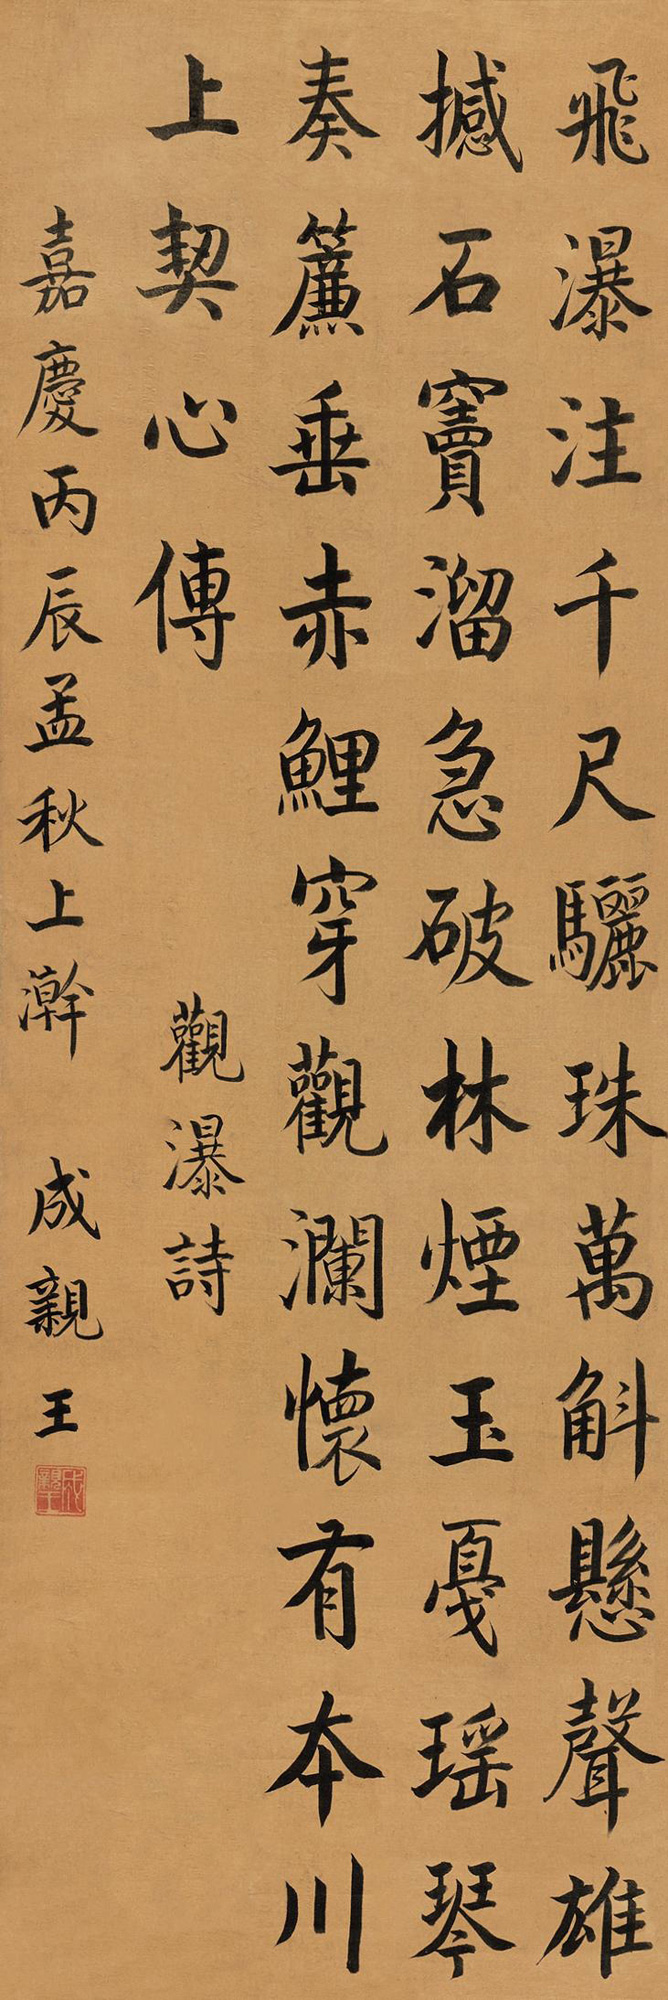 飛瀑注千尺驪珠萬斛懸聲雄
撼石竇溜急破林煙玉戛瑶琴
奏簾垂赤鯉穿觀瀾懷有本川
上契心傳 觀瀑詩
嘉慶丙辰孟秋上澣 成親王
成親王